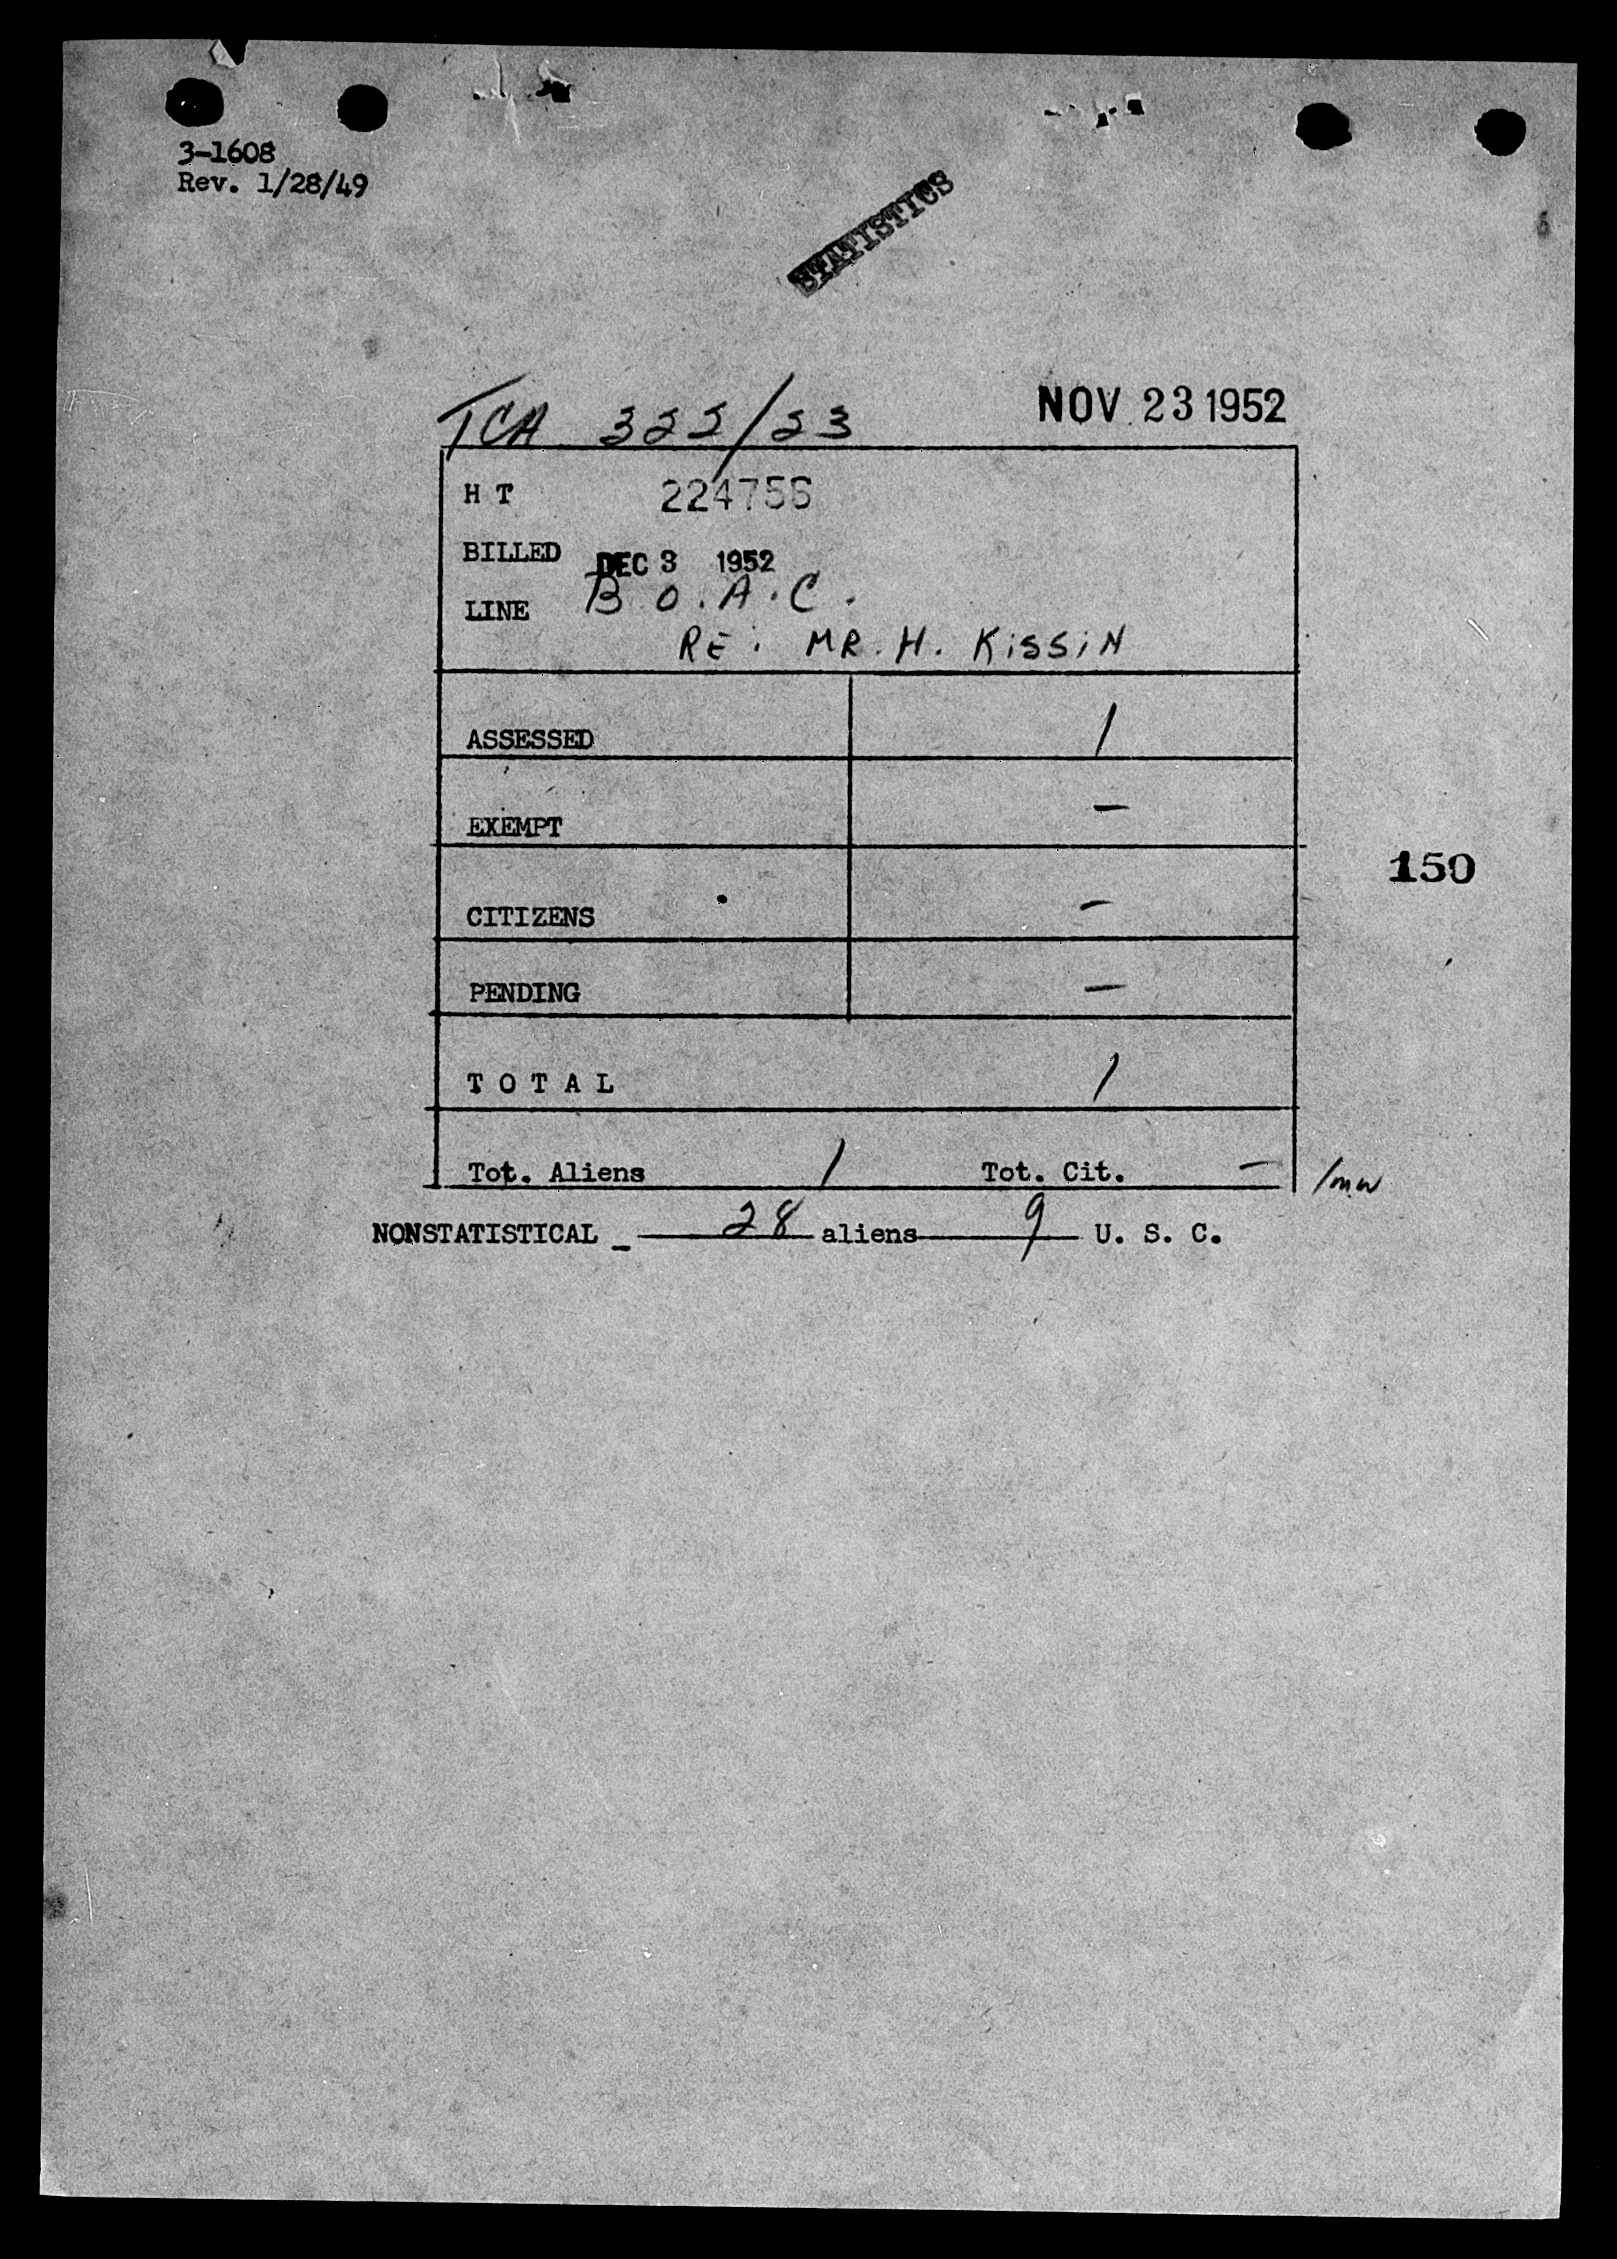 3-1608
Rev. 1/28/49
STATISTICS
TCA 322/23
NOV 23 1952
H T 224756
BILLED DEC 3 1952
LINE B.O.A.C.
RE: MR. H. KISSIN
ASSESSED 1
EXEMPT –
150
CITIZENS –
PENDING –
T O T A L 1
Tot. Aliens 1 Tot. Cit. – /mw
NONSTATISTICAL – 28 aliens 9 U. S. C.